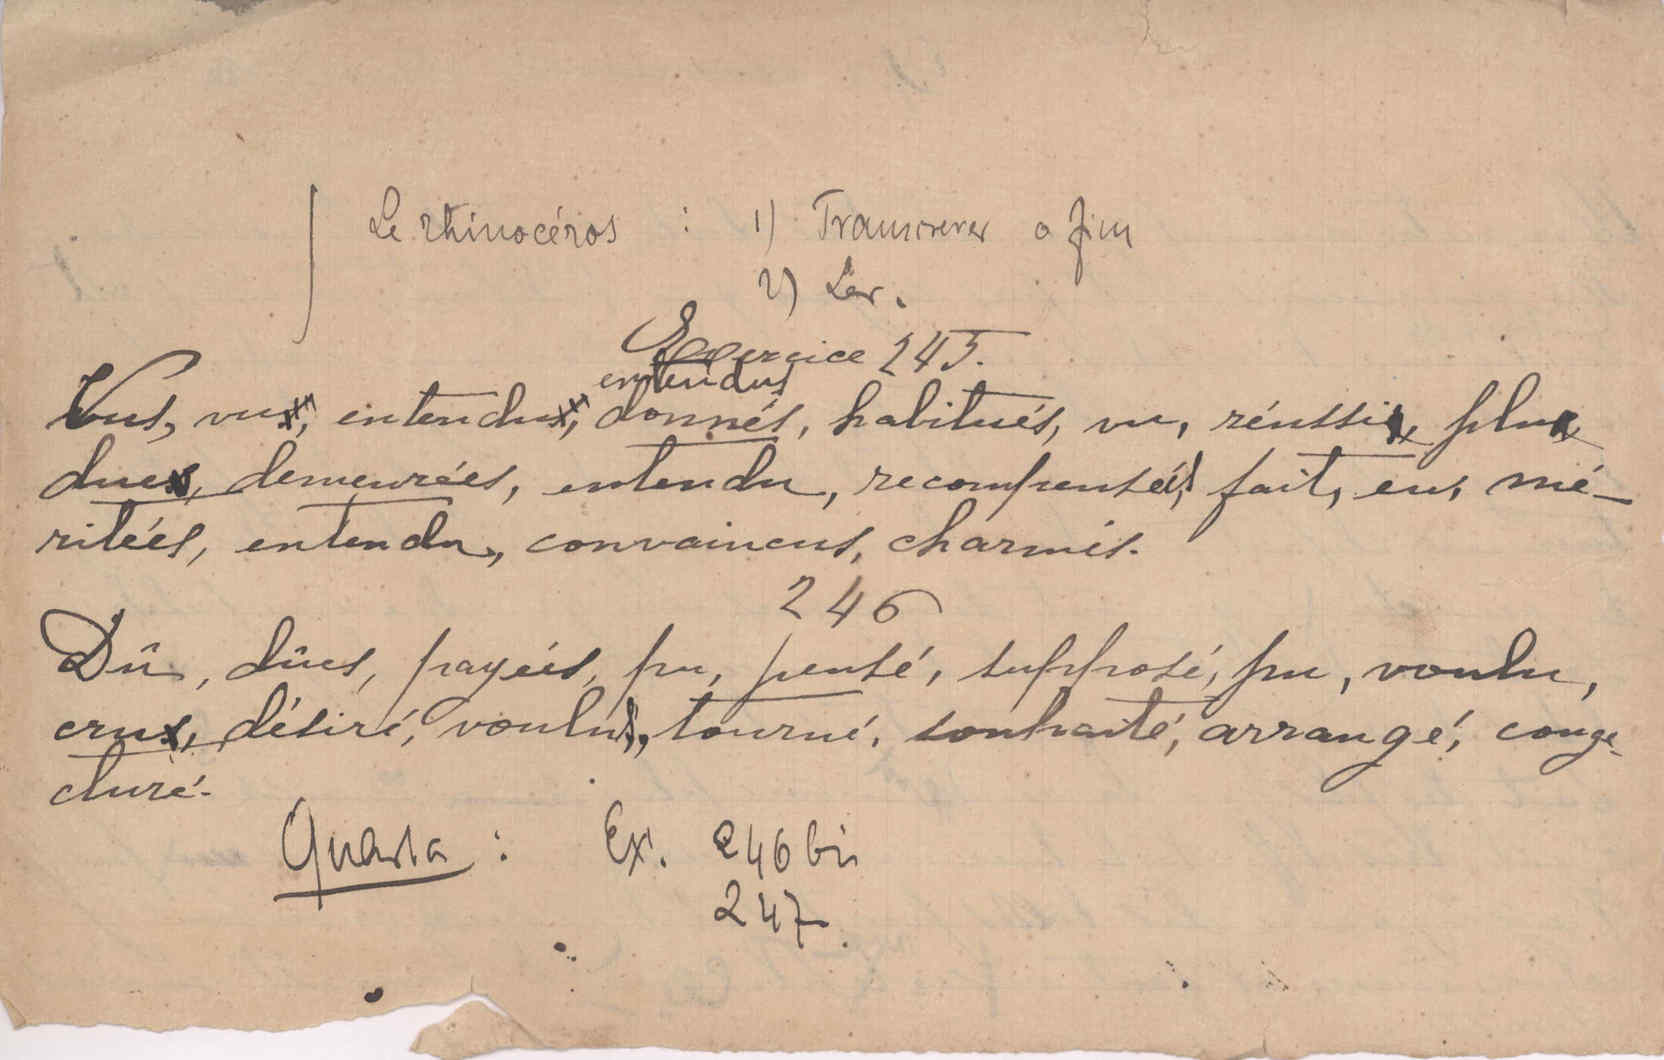 Le rhinocéros : 1) Transcrever o fim
2) Ler.
Exercice 245.
entendus
Vus, vus, entendus, donnés, habitués, vu, réussi, plu
dues, demeurées, entendu, recompensés, fait, eu, mé-
ritées, entendu, convaincus, charmés.
246
Dû, dûes, payées, pu, pensé, supposé, pu, voulu,
crus, désiré, voulus, tourné, souhaité, arrangé, conje-
cturé.
Quarta : Ex. 246 bis
247.